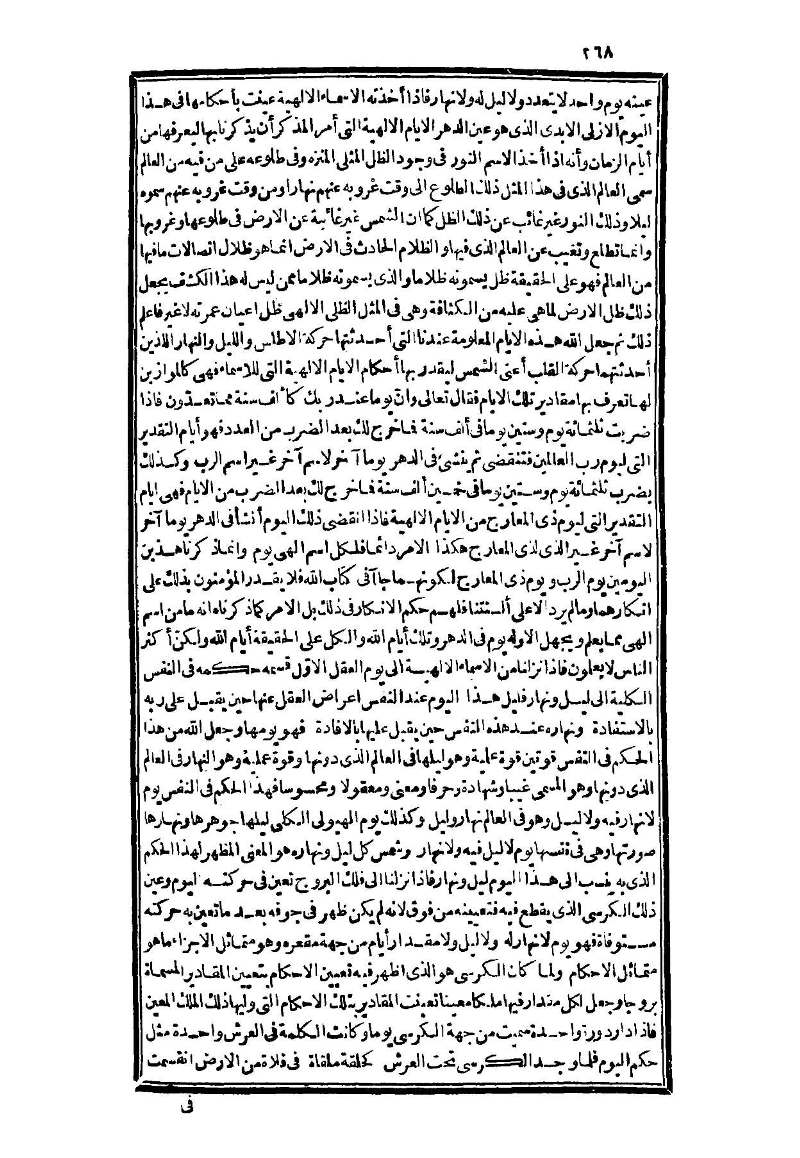 ٢٦٨
عينه يوم واحد لا يتعدد ولا ليل له ولا نهار فاذا أخذته الاسماء الالهية عينت بأحكامها فى هذا
اليوم الازلى الابدى الذى هو عين الدهر الايام الالهية التى أمر المذكر أن يذكرنا بها ليعرفها من
أيام الزمان وأنه اذا أخذ الاسم النور فى وجود الظل المثلى المنزه وفى طلوعه على من فيه من العالم
سمى العالم الذى فى هذا المثل ذلك الطلوع الى وقت غروبه عنهم نهارا ومن وقت غروبه عنهم سموه
ليلا وذلك النور غير غائب عن ذلك الظل كما ان الشمس غير غائبة عن الارض فى طلوعها وغروبها
وانما تطلع وتغيب عن العالم الذى فيها والظلام الحادث فى الارض انما هو ظلال اتصالات ما فيها
من العالم فهو على الحقيقة ظل يسمونه ظلاما والذى يسمونه ظلاما ممن ليس له هذا الكشف يجعل
ذلك ظل الارض لما هى عليه من الكثافة وهى فى المثل الظلى الالهى ظل اعيان عمرته لا غير فاعلم
ذلك ثم جعل الله هذه الايام المعلومة عندنا التى أحدثتها حركة الاطلس والليل والنهار اللذين
أحدثتهما حركة القلب أعنى الشمس ليقدر بها أحكام الايام الالهية التى للاسماء فهى كالموازين
لها تعرف بها مقادير تلك الايام فقال تعالى وانّ يوما عند ربك كألف سنة مما تعدّون فاذا
ضربت ثلثمائة يوم وستين يوما فى ألف سنة فما خرج لك بعد الضرب من العدد فهو أيام التقدير
التى ليوم رب العالمين فتنقضى ثم ينشئ فى الدهر يوما آخر لاسم آخر غير اسم الرب وكذلك
يضرب ثلثمائة يوم وستين يوما فى خمسين ألف سنة فما خرج لك بعد الضرب من الايام فهى ايام
التقدير التى ليوم ذى المعارج من الايام الالهية فاذا انقضى ذلك اليوم أنشأ فى الدهر يوما آخر
لاسم آخر غير الذى لذى المعارج هكذا الامر دائما فلكل اسم الهى يوم وانما ذكرنا هذين
اليومين يوم الرب ويوم ذى المعارج لكونهما جاآ فى كتاب الله فلا يقدر المؤمنون بذلك على
انكارهما وما لم يرد الا على ألسنتنا فلهم حكم الانكار فى ذلك بل الامر كما ذكرناه انه ما من اسم
الهى مما يعلم ويجهل الا وله يوم فى الدهر وتلك أيام الله والكل على الحقيقة أيام الله ولكنّ أكثر
الناس لا يعلمون فاذا نزلنا من الاسماء الالهية الى يوم العقل الاول قسمه حكمه فى النفس
الكلية الى ليل ونهار فليل هذا اليوم عند النفس اعراض العقل عنها حين يقبل على ربه
بالاستفادة ونهاره عند هذه النفس حين يقبل عليها بالافادة فهو يومها وجعل الله من هذا
الحكم فى النفس قوتين قوة علمية وهو ليلها فى العالم الذى دونها وقوة عملية وهو النهار فى العالم
الذى دونها وهو المسمى غيبا وشهادة وحرفا ومعنى ومعقولا ومحسوسا فهذا الحكم فى النفس يوم
لا نهار فيه ولا ليل وهو فى العالم نهار وليل وكذلك يوم الهيولى الكلى ليلها جوهرها ونهارها
صورتها وهى فى نفسها يوم لا ليل فيه ولا نهار وشمس كل ليل ونهاره هو المعنى المظهر لهذا الحكم
الذى به ينسب الى هذا اليوم ليل ونهار فاذا نزلنا الى فلك البروج تعين فى حركته اليوم وعين
ذلك الكرسى الذى يقطع فيه فتعيينه من فوق لانه لم يكن ظهر فى جوفه بعد ما تعين به حركته
مستوفاة فهو يوم لا نهار له ولا ليل ولا مقدار أيام من جهة مقعره وهو متماثل الاجزاء ما هو
متماثل الاحكام ولما كان الكرسى هو الذى اظهر فيه تعيين الاحكام بتعيين المقادير المسماة
بروجا وجعل لكل مقدار فيها ملكا معينا تعينت المقادير بتلك الاحكام التى وليها ذلك الملك المعين
فاذا دار دورة واحدة سميت من جهة الكرسى يوما وكانت الكلمة فى العرش واحدة مثل
حكم اليوم فلما وجد الكرسى تحت العرش كحلقة ملقاة فى فلاة من الارض انقسمت
فى